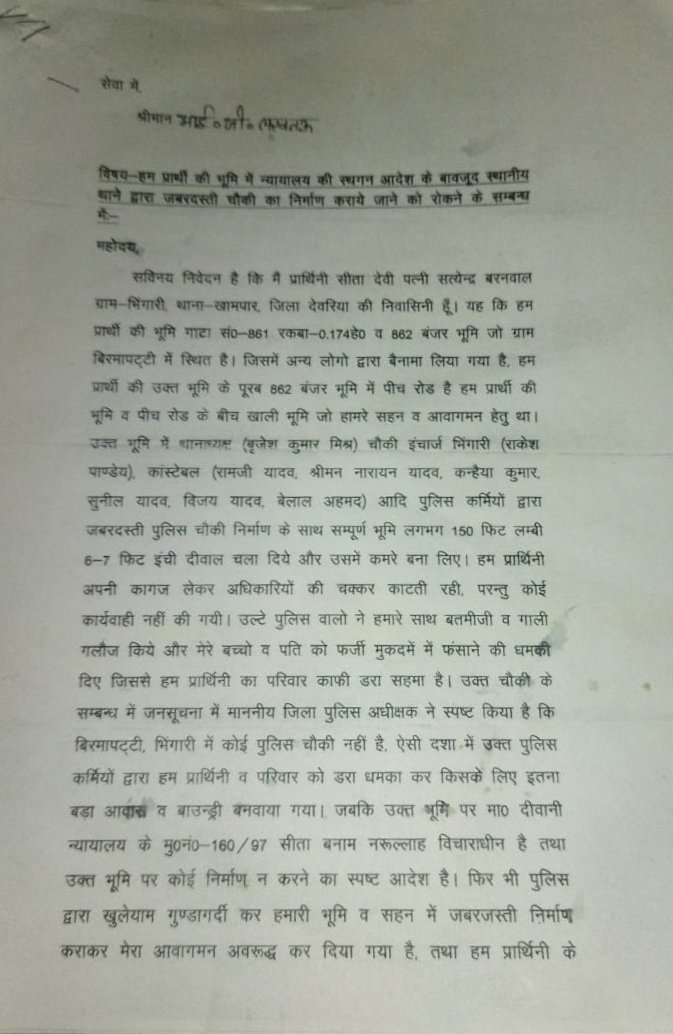 सेवा में,
श्रीमान आई०जी० लखनऊ
विषय–हम प्रार्थी की भूमि में न्यायालय की स्थगन आदेश के बावजूद स्थानीय
थाने द्वारा जबरदस्ती चौकी का निर्माण कराये जाने को रोकने के सम्बन्ध
में:–
महोदय,
सविनय निवेदन है कि मैं प्रार्थिनी सीता देवी पत्नी सत्येन्द्र बरनवाल
ग्राम–भिंगारी, थाना–खामपार, जिला देवरिया की निवासिनी हूँ। यह कि हम
प्रार्थी की भूमि गाटा सं0–861 रकबा–0.174हे0 व 862 बंजर भूमि जो ग्राम
बिरमापट्टी में स्थित है। जिसमें अन्य लोगो द्वारा बैनामा लिया गया है, हम
प्रार्थी की उक्त भूमि के पूरब 862 बंजर भूमि में पीच रोड है हम प्रार्थी की
भूमि व पीच रोड के बीच खाली भूमि जो हामरे सहन व आवागमन हेतु था।
उक्त भूमि में थानाध्यक्ष (बृजेश कुमार मिश्र) चौकी इंचार्ज भिंगारी (राकेश
पाण्डेय), कांस्टेबल (रामजी यादव, श्रीमन नारायन यादव, कन्हैया कुमार,
सुनील यादव, विजय यादव, बेलाल अहमद) आदि पुलिस कर्मियों द्वारा
जबरदस्ती पुलिस चौकी निर्माण के साथ सम्पूर्ण भूमि लगभग 150 फिट लम्बी
6–7 फिट इंची दीवाल चला दिये और उसमें कमरे बना लिए। हम प्रार्थिनी
अपनी कागज लेकर अधिकारियों की चक्कर काटती रही, परन्तु कोई
कार्यवाही नहीं की गयी। उल्टे पुलिस वालो ने हमारे साथ बतमीजी व गाली
गलौज किये और मेरे बच्चो व पति को फर्जी मुकदमें में फंसाने की धमकी
दिए जिससे हम प्रार्थिनी का परिवार काफी डरा सहमा है। उक्त चौकी के
सम्बन्ध में जनसूचना में माननीय जिला पुलिस अधीक्षक ने स्पष्ट किया है कि
बिरमापट्टी, भिंगारी में कोई पुलिस चौकी नहीं है, ऐसी दशा में उक्त पुलिस
कर्मियों द्वारा हम प्रार्थिनी व परिवार को डरा धमका कर किसके लिए इतना
बड़ा आवास व बाउन्ड्री बनवाया गया। जबकि उक्त भूमि पर मा0 दीवानी
न्यायालय के मु0नं0–160/97 सीता बनाम नरूल्लाह विचाराधीन है तथा
उक्त भूमि पर कोई निर्माण न करने का स्पष्ट आदेश है। फिर भी पुलिस
द्वारा खुलेयाम गुण्डागर्दी कर हमारी भूमि व सहन में जबरजस्ती निर्माण
कराकर मेरा आवागमन अवरूद्ध कर दिया गया है, तथा हम प्रार्थिनी के